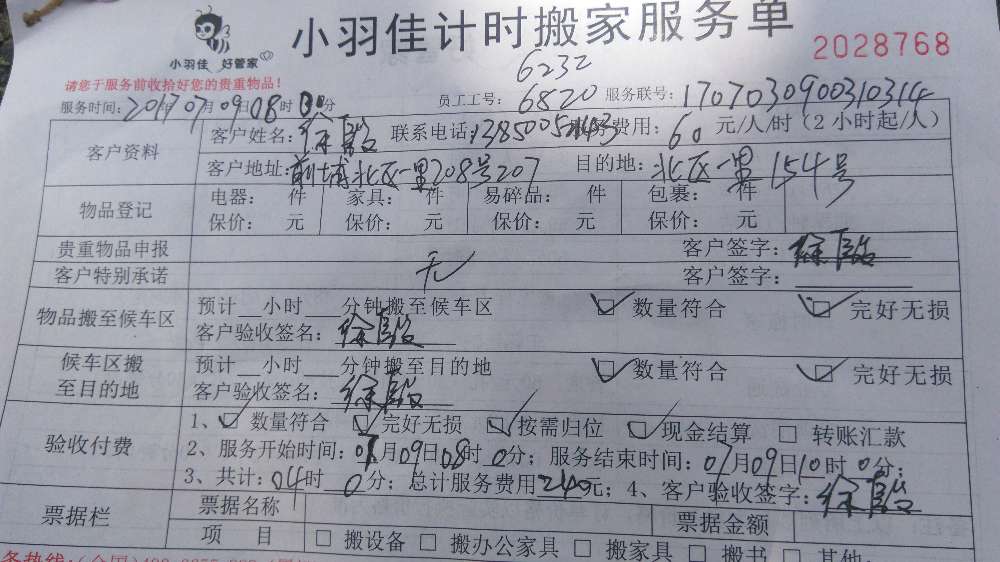 小羽佳计时搬家服务单
小羽佳 好管家
2028768
请您于服务前收拾好您的贵重物品!
6232
服务时间: 2017年07月09日08时00分 员工工号: 6820 服务联号: 1707030900310314
客户资料
客户姓名: 徐 联系电话: 服务费用: 60 元/人/时 (2小时起/人)
客户地址: 前埔北区一里208号207 目的地: 北区一里154号
物品登记
电器: 件 家具: 件 易碎品: 件 包裹: 件
保价: 元 保价: 元 保价: 元 保价: 元
贵重物品申报 客户签字: 徐
客户特别承诺 无 客户签字:
物品搬至候车区
预计__小时___分钟搬至候车区 数量符合 完好无损
客户验收签名: 徐
候车区搬至目的地
预计__小时___分钟搬至目的地 数量符合 完好无损
客户验收签名: 徐
验收付费
1、数量符合 完好无损 按需归位 现金结算 转账汇款
2、服务开始时间: 07月09日08时0分; 服务结束时间: 07月09日10时0分;
3、共计: 04时0分; 总计服务费用240元; 4、客户验收签字: 徐
票据栏
票据名称 票据金额
项 目 搬设备 搬办公家具 搬家具 搬书 其他
务热线: (全国)